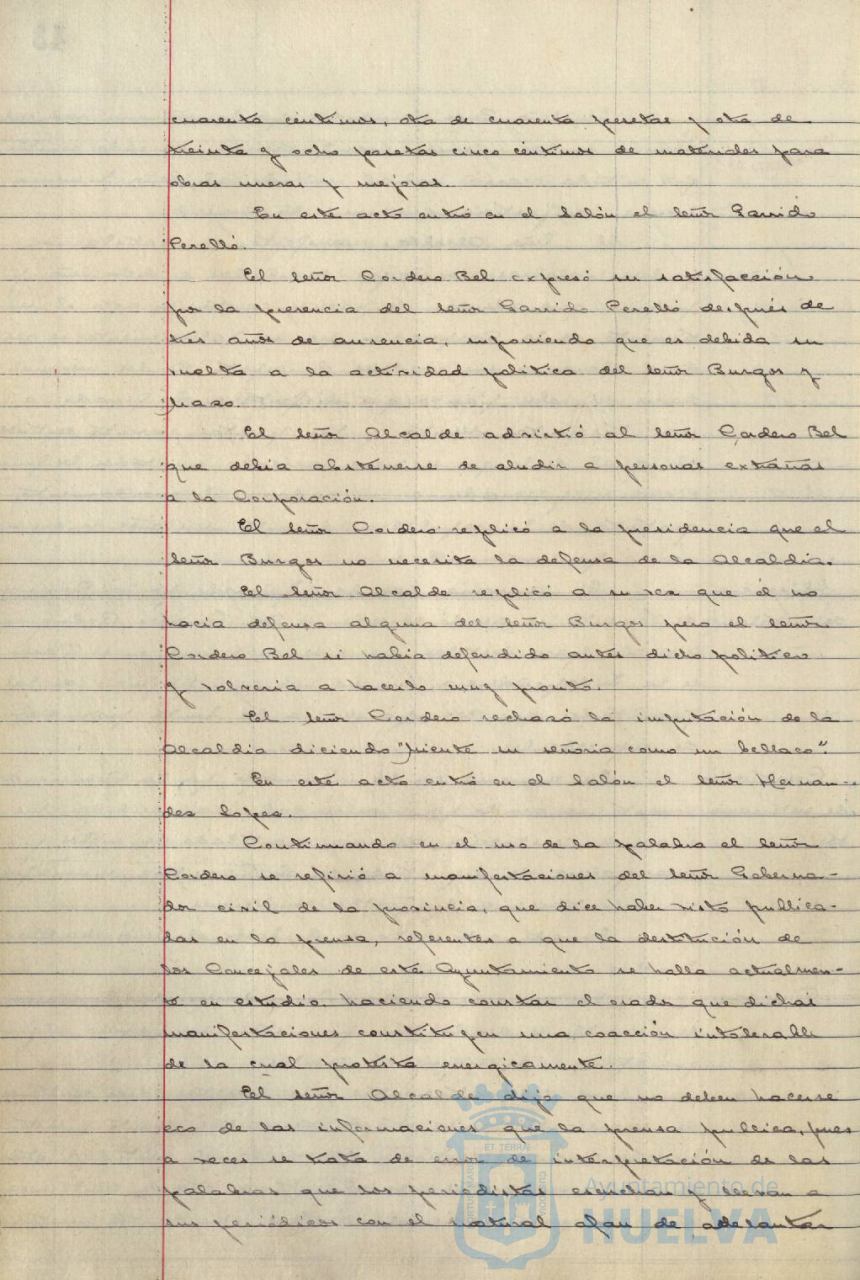 cuarenta céntimos, otra de cuarenta pesetas y otra de
treinta y ocho pesetas cinco céntimos de materiales para
obras nuevas y mejoras.
En este acto entró en el Salón el Señor Garrido
Perelló.
El Señor Cordero Bel expresó su satisfacción
por la presencia del Señor Garrido Perelló después de
tres años de ausencia, suponiendo que es debida su
vuelta a la actividad política del Señor Burgos y
Mazo.
El Señor Alcalde advirtió al Señor Cordero Bel
que debía abstenerse de aludir a personas extrañas
a la Corporación.
El Señor Cordero replicó a la presidencia que el
Señor Burgos no necesita la defensa de la Alcaldía.
El Señor Alcalde replicó a su vez que él no
hacía defensa alguna del Señor Burgos pero el Señor
Cordero Bel si había defendido antes dicho político
y volvería a hacerlo muy pronto.
El Señor Cordero rechazó la imputación de la
Alcaldía diciendo "Miente su señoría como un bellaco".
En este acto entró en el Salón el Señor Hernan-
dez Lopez.
Continuando en el uso de la palabra el Señor
Cordero se refirió a manifestaciones del Señor Goberna-
dor civil de la provincia, que dice haber visto publica-
das en la prensa, referentes a que la destitución de
los Concejales de este Ayuntamiento se halla actualmen-
te en estudio, haciendo constar el orador que dichas
manifestaciones constituyen una coacción intolerable
de la cual protesta energicamente.
El Señor Alcalde dijo que no deben hacerse
eco de las informaciones que la prensa publica, pues
a veces se trata de error de interpretación de las
palabras que los periodistas escuchan y llevan a
sus periódicos con el natural afan de adelantar
ET TERRAE
Ayuntamiento de
HUELVA